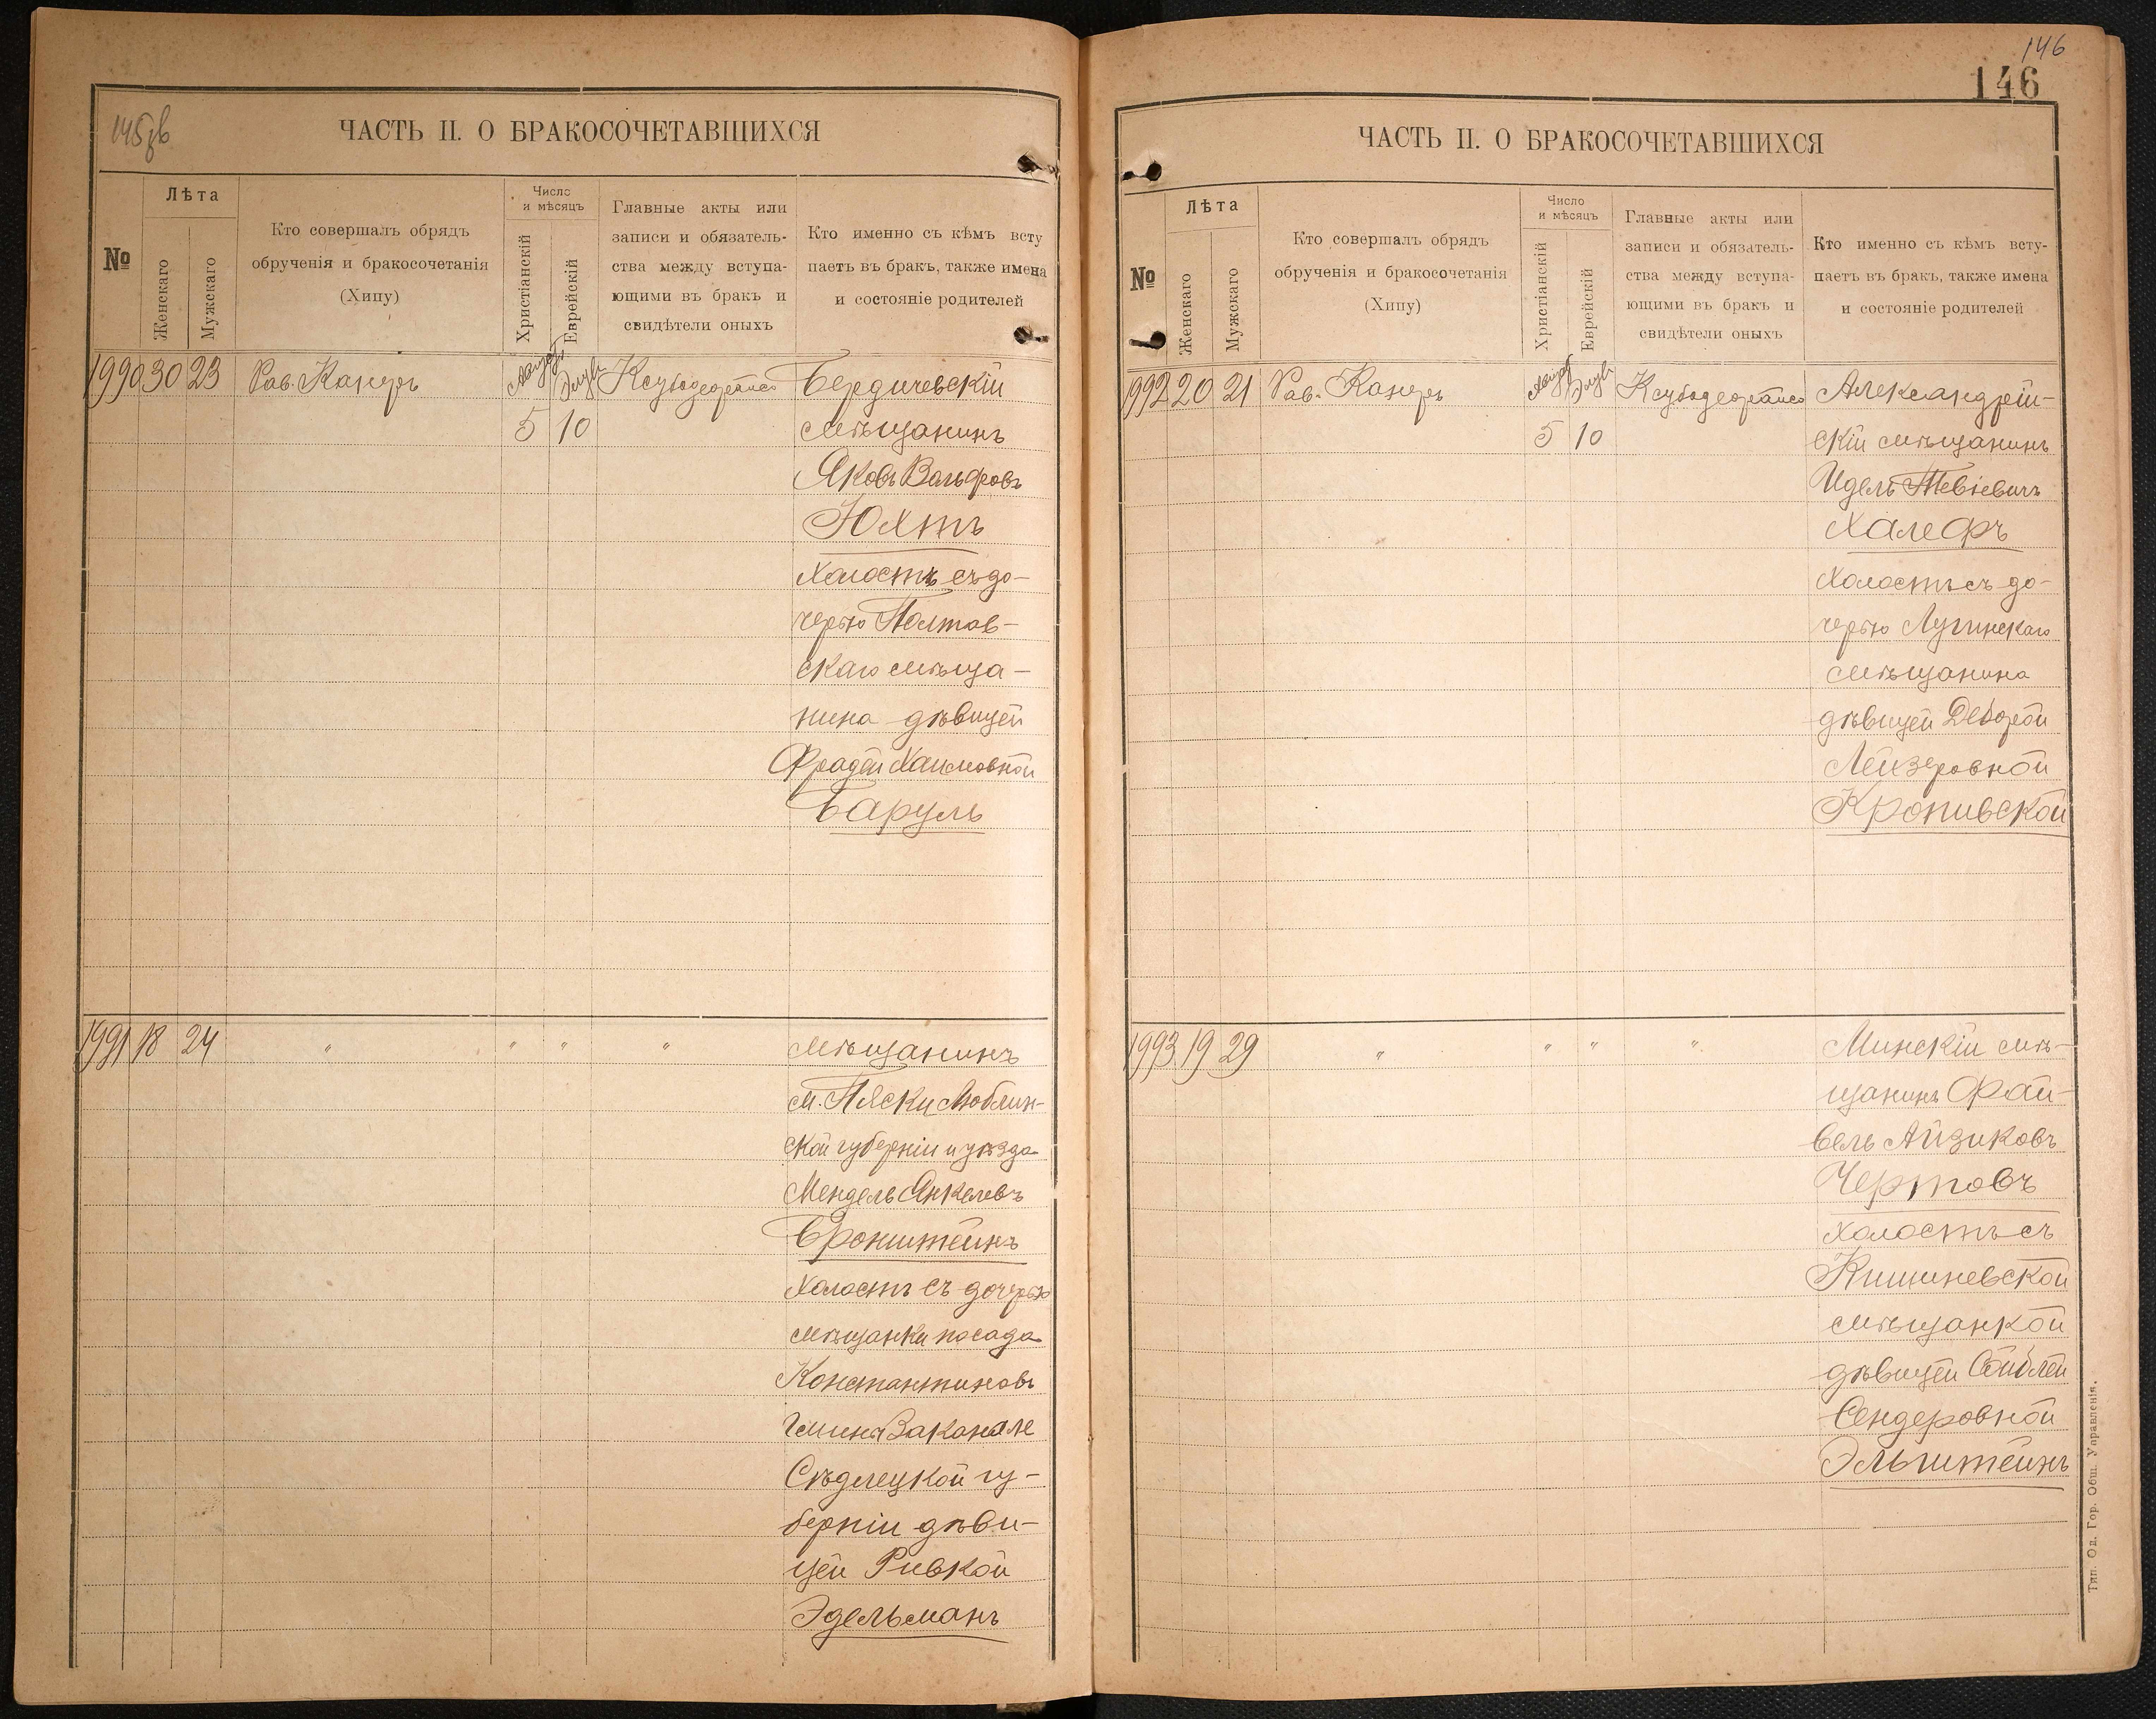 145 об
ЧАСТЬ II. О БРАКОСОЧЕТАВШИХСЯ
№
Лѣта
Женскаго
Мужскаго
Кто совершалъ обрядъ
обрученія и бракосочетанія
(Хипу)
Число
и мѣсяцъ
Христіанскій
Еврейскій
Главные акты или
записи и обязатель-
ства между вступа-
ющими въ бракъ и
свидѣтели оныхъ
Кто именно съ кѣмъ всту
паетъ въ бракъ, также имена
и состояніе родителей
1990 30 23 Рав. Канеръ Августъ Элулъ Бердичевскій
5 10 мѣщанинъ
Яковъ Вольфовъ
Юхтъ
холостъ съ до-
черью Полтав-
скаго мѣща-
нина дѣвицей
Фрадей Хаимовной
Баруль
1991 18 24 " " " " Мѣщанинъ
м. Пяски Люблин-
ской губерніи и уѣзда
Мендель Янкелевъ
Бронштейнъ
холостъ съ дочерью
мѣщанки посада
Константиновъ
гмины Заканале
Сѣдлецкой гу-
берніи дѣви-
цей Ривкой
Эдельманъ
146
146
ЧАСТЬ II. О БРАКОСОЧЕТАВШИХСЯ
№
Лѣта
Женскаго
Мужскаго
Кто совершалъ обрядъ
обрученія и бракосочетанія
(Хипу)
Число
и мѣсяцъ
Христіанскій
Еврейскій
Главные акты или
записи и обязатель-
ства между вступа-
ющими въ бракъ и
свидѣтели оныхъ
Кто именно съ кѣмъ всту-
паетъ въ бракъ, также имена
и состояніе родителей
1992 20 21 Рав. Канеръ Августъ Элулъ Александрій-
5 10 скій мѣщанинъ
Идель Тевіевичъ
Халефъ
холостъ съ до-
черью Лугинскаго
мѣщанина
дѣвицей Деборой
Лейзеровной
Кропивской
1993 19 29 " " " " Минскій мѣ-
щанинъ Фай-
вель Айзиковъ
Чертовъ
холостъ съ
Кишиневской
мѣщанкой
дѣвицей Сейблей
Сендеровной
Эльштейнъ
Тип. Од. Гор. Общ. Управленія.